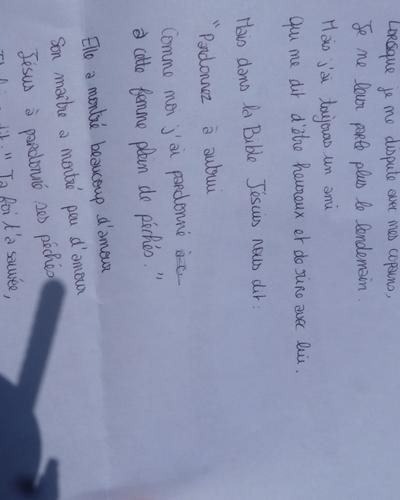 Lorsque je me dispute avec mes copains,
Je ne leur parle plus le lendemain.
Mais j'ai toujours un ami
Qui me dit d'être heureux et de rire avec lui.
Mais dans la Bible Jésus nous dit :
"Pardonnez à autrui
Comme moi j'ai pardonné
à cette femme plein de péchés."
Elle a montré beaucoup d'amour
Son maître a montré peu d'amour
Jésus à pardonné ses péchés
dit: "Ta foi t'a sauvée,